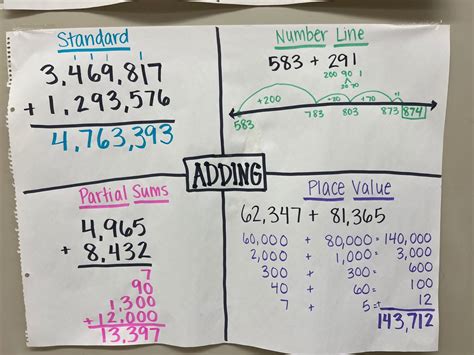 Standard
1 1 1 1
3,469,817
+ 1,293,576
4,763,393
Number Line
583 + 291
200 90 1
20 70
+200 +20 +70 +1
583 783 803 873 874
ADDING
Partial Sums
4,965
+ 8,432
7
90
1,300
+12,000
13,397
Place Value
62,347 + 81,365
60,000 + 80,000 = 140,000
2,000 + 1,000 = 3,000
300 + 300 = 600
40 + 60 = 100
7 + 5 = + 12
143,712